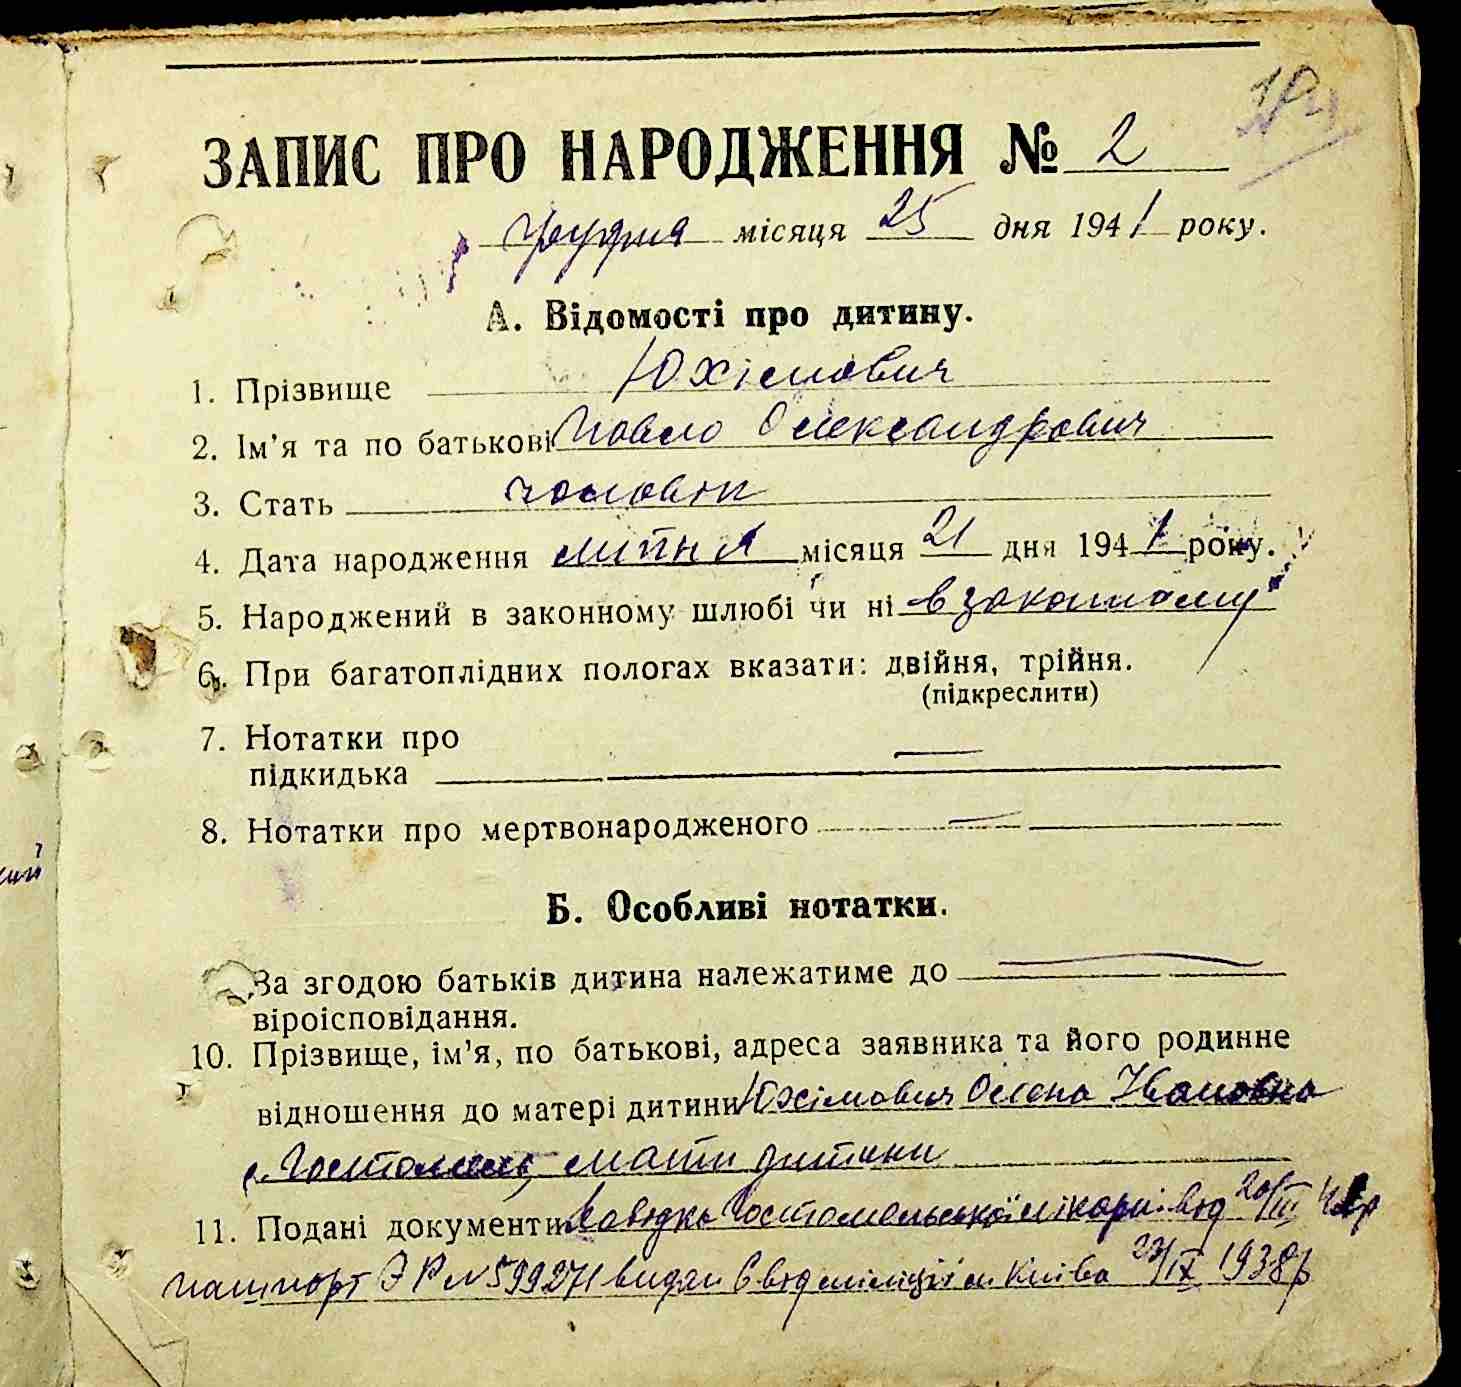 ЗАПИС ПРО НАРОДЖЕННЯ № 2
грудня місяця 25 дня 1941 року.
А. Відомості про дитину.
1. Прізвище Юхімович
2. Ім'я та по батькові Павло Олександрович
3. Стать чоловік
4. Дата народження липня місяця 21 дня 1941 року.
5. Народжений в законному шлюбі чи ні в законному
6. При багатоплідних пологах вказати: двійня, трійня.
(підкреслити)
7. Нотатки про
підкидька —
8. Нотатки про мертвонародженого —
Б. Особливі нотатки.
За згодою батьків дитина належатиме до —
віроісповідання.
10. Прізвище, ім'я, по батькові, адреса заявника та його родинне
відношення до матері дитини Юхімович Олена Івановна
с. Гостомель, мати дитини
11. Подані документи Довідка Гостомельської лікарні від
пашпорт ЭР № 599271 видан 6 від міліції м Київа 23/IX 1938 р